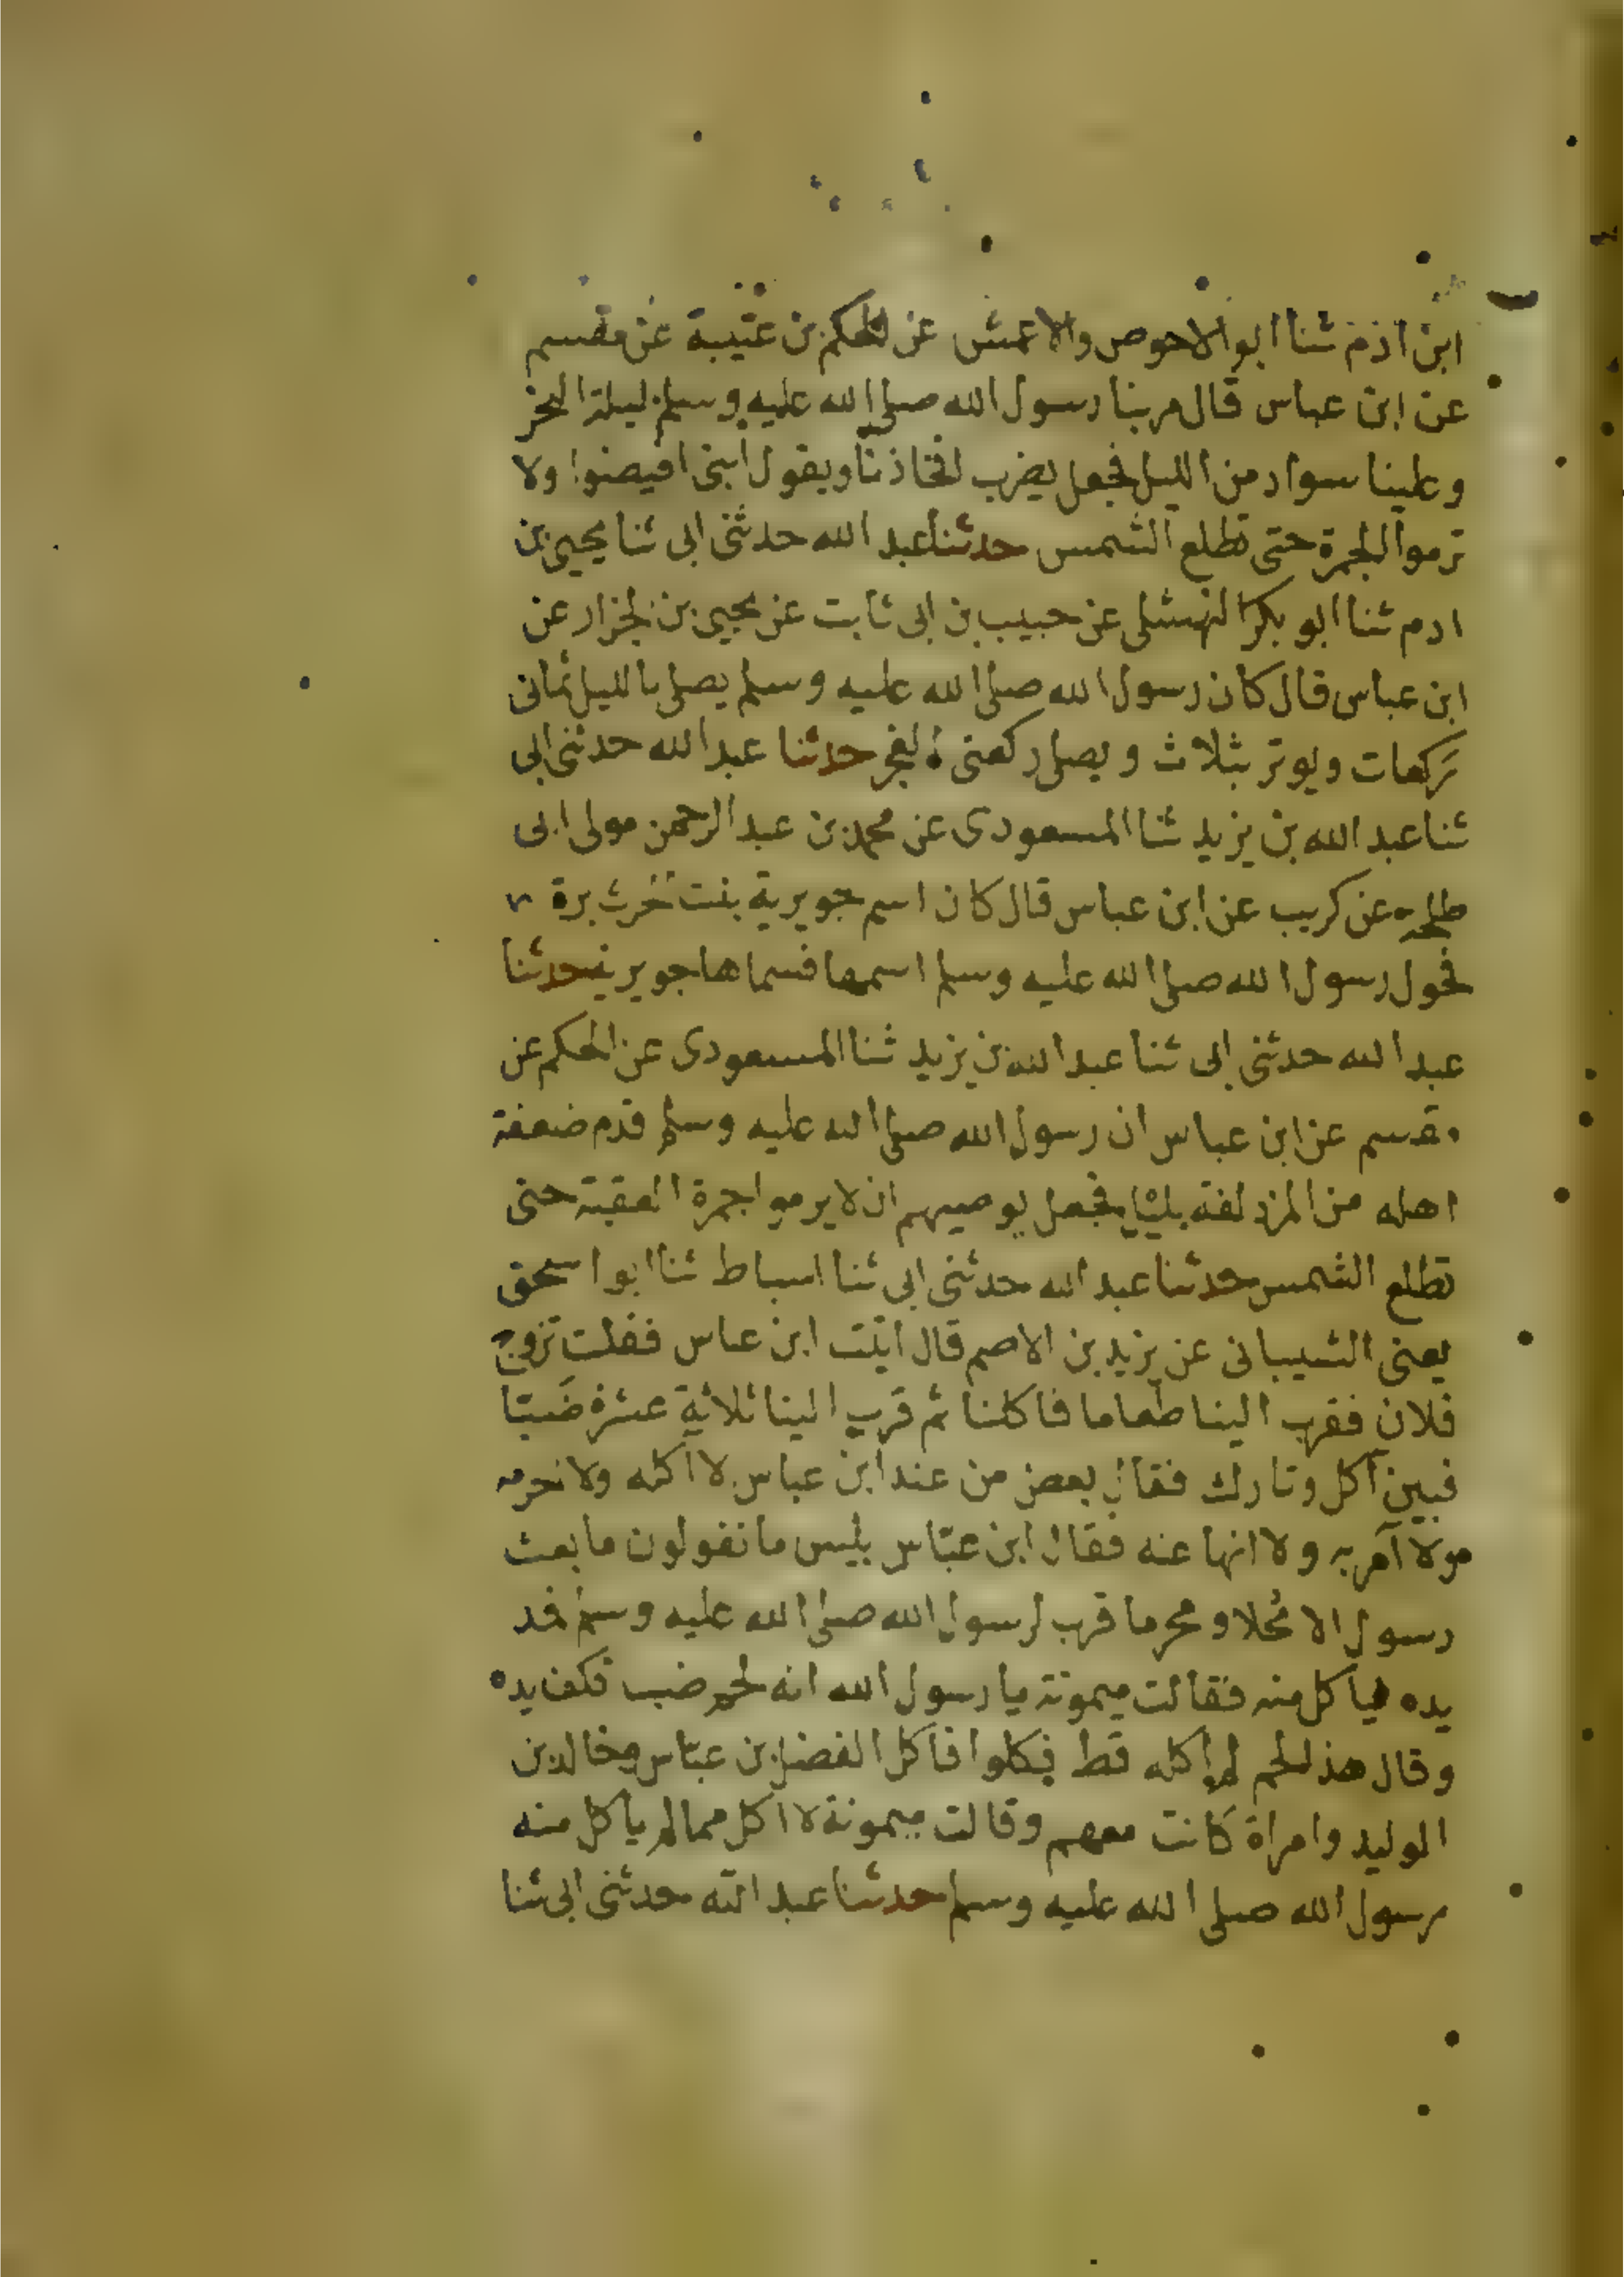 ابن ادم ثنا ابو الاحوص والاعمش عن الحكم بن عتيبة عن مقسم
عن ابن عباس قال مر بنا رسول الله صلى الله عليه وسلم ليلة النحر
وعلينا سواد من الليل فجعل يضرب افخاذنا ويقول ابنى افيضوا ولا
ترموا الجمرة حتى تطلع الشمس حدثنا عبد الله حدثنى ابى ثنا يحيى بن
ادم ثنا ابو بكر النهشلى عن حبيب بن ابى ثابت عن يحيى بن الجزار عن
ابن عباس قال كان رسول الله صلى الله عليه وسلم يصلى بالليل ثمانى
ركعات ويوتر بثلاث ويصلى ركعتى الفجر حدثنا عبد الله حدثنى ابى
ثنا عبد الله بن يزيد ثنا المسعودى عن محمد بن عبد الرحمن مولى ابى
طلحه عن كريب عن ابن عباس قال كان اسم جويرية بنت الحرث برة
فحول رسول الله صلى الله عليه وسلم اسمها فسماها جويرية حدثنا
عبد الله حدثنى ابى ثنا عبد الله بن يزيد ثنا المسعودى عن الحكم عن
مقسم عن ابن عباس ان رسول الله صلى الله عليه وسلم قدم ضعفة
اهله من المزدلفة بليل فجعل يوصيهم ان لا يرموا جمرة العقبة حتى
تطلع الشمس حدثنا عبد الله حدثنى ابى ثنا اسباط ثنا ابو اسحق
يعنى الشيبانى عن يزيد بن الاصم قال اتيت ابن عباس فقلت تزوج
فلان فقرب الينا طعاما فاكلنا ثم قرب الينا ثلاثة عشرة ضبّا
فبين آكل وتارك فقال بعض من عند ابن عباس لا آكله ولا نحرمه
ولا آمر به ولا انها عنه فقال ابن عبّاس بليس ما تقولون ما بعث
رسول الا محلا ومحرما قرب لرسول الله صلى الله عليه وسلم فمد
يده لياكل منه فقالت ميمونة يا رسول الله انه لحم ضب فكف يده
وقال هذ لحم لم اكله قط فكلوا فاكل الفضل بن عبّاس وخالد بن
الوليد وامراة كانت معهم وقالت ميمونة لا اكل مما لم ياكل منه
رسول الله صلى الله عليه وسلم حدثنا عبد الله حدثنى ابى ثنا